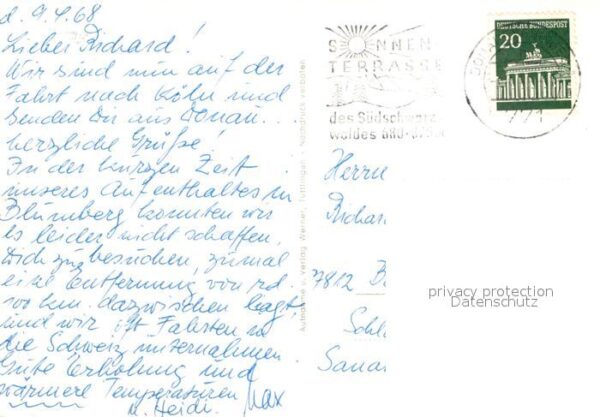 d. 9.4.68
Lieber Richard!
Wir sind nun auf der
Fahrt nach Köln und
senden Dir aus Donau..
herzliche Grüße!
In der kurzen Zeit
unseres Aufenthaltes in
Blumberg konnten wir
es leider nicht schaffen,
Dich zu besuchen, zumal
eine Entfernung von rd.
100 km. dazwischen liegt,
und wir oft Fahrten in
die Schweiz unternahmen.
Gute Erholung und
wärmere Temperaturen
u. Heidi Max
Aufnahme u. Verlag Werner, Tuttlingen - Nachdruck verboten
SONNEN-
TERRASSE
des Südschwarz
waldes 680-
DEUTSCHE BUNDESPOST
20
771
Herrn
Richar
7812 B
Schl
Sana
privacy protection
Datenschutz